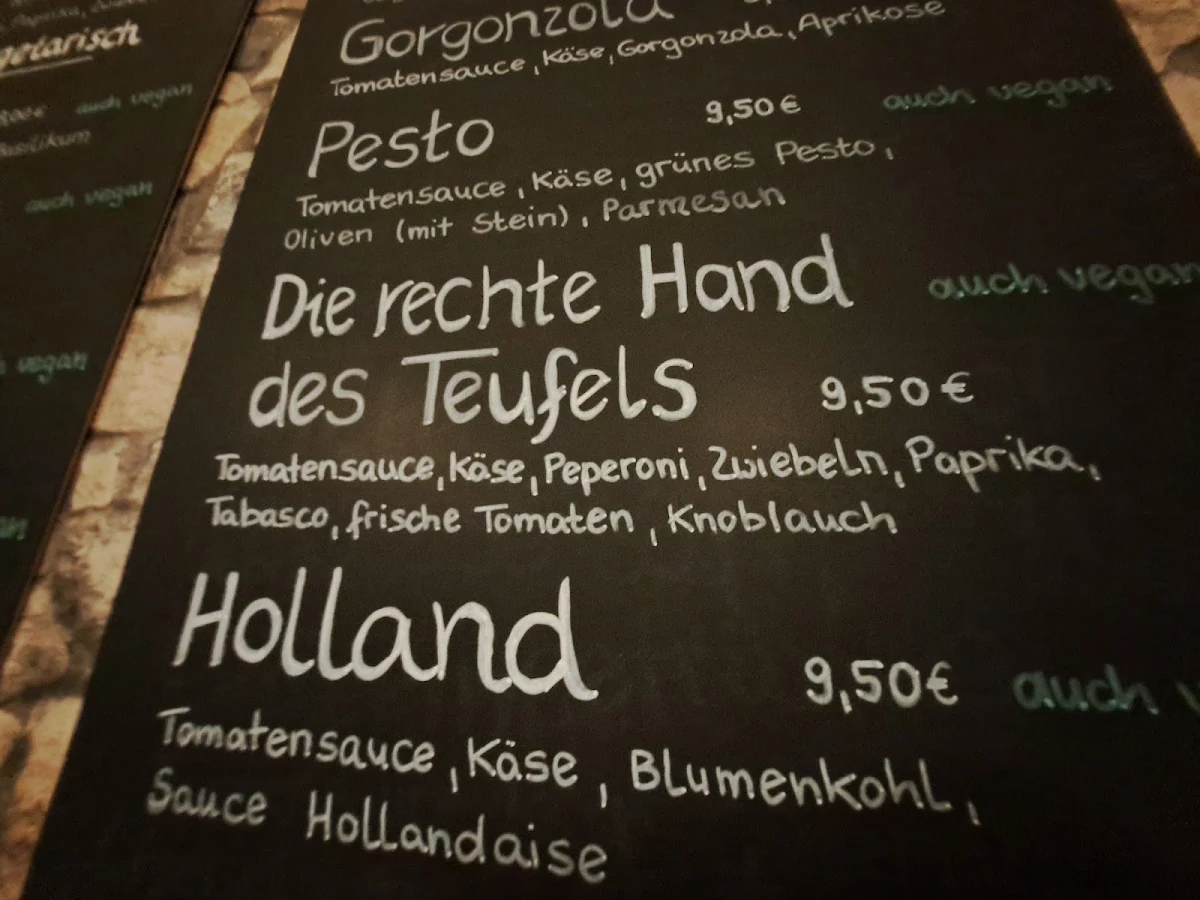 getarisch
auch vegan
Basilikum
auch vegan
vegan
Gorgonzola
Tomatensauce, Käse, Gorgonzola, Aprikose
Pesto 9,50€ auch vegan
Tomatensauce, Käse, grünes Pesto,
Oliven (mit Stein), Parmesan
Die rechte Hand auch vegan
des Teufels 9,50€
Tomatensauce, Käse, Peperoni, Zwiebeln, Paprika,
Tabasco, frische Tomaten, Knoblauch
Holland 9,50€ auch
Tomatensauce, Käse, Blumenkohl,
Sauce Hollandaise